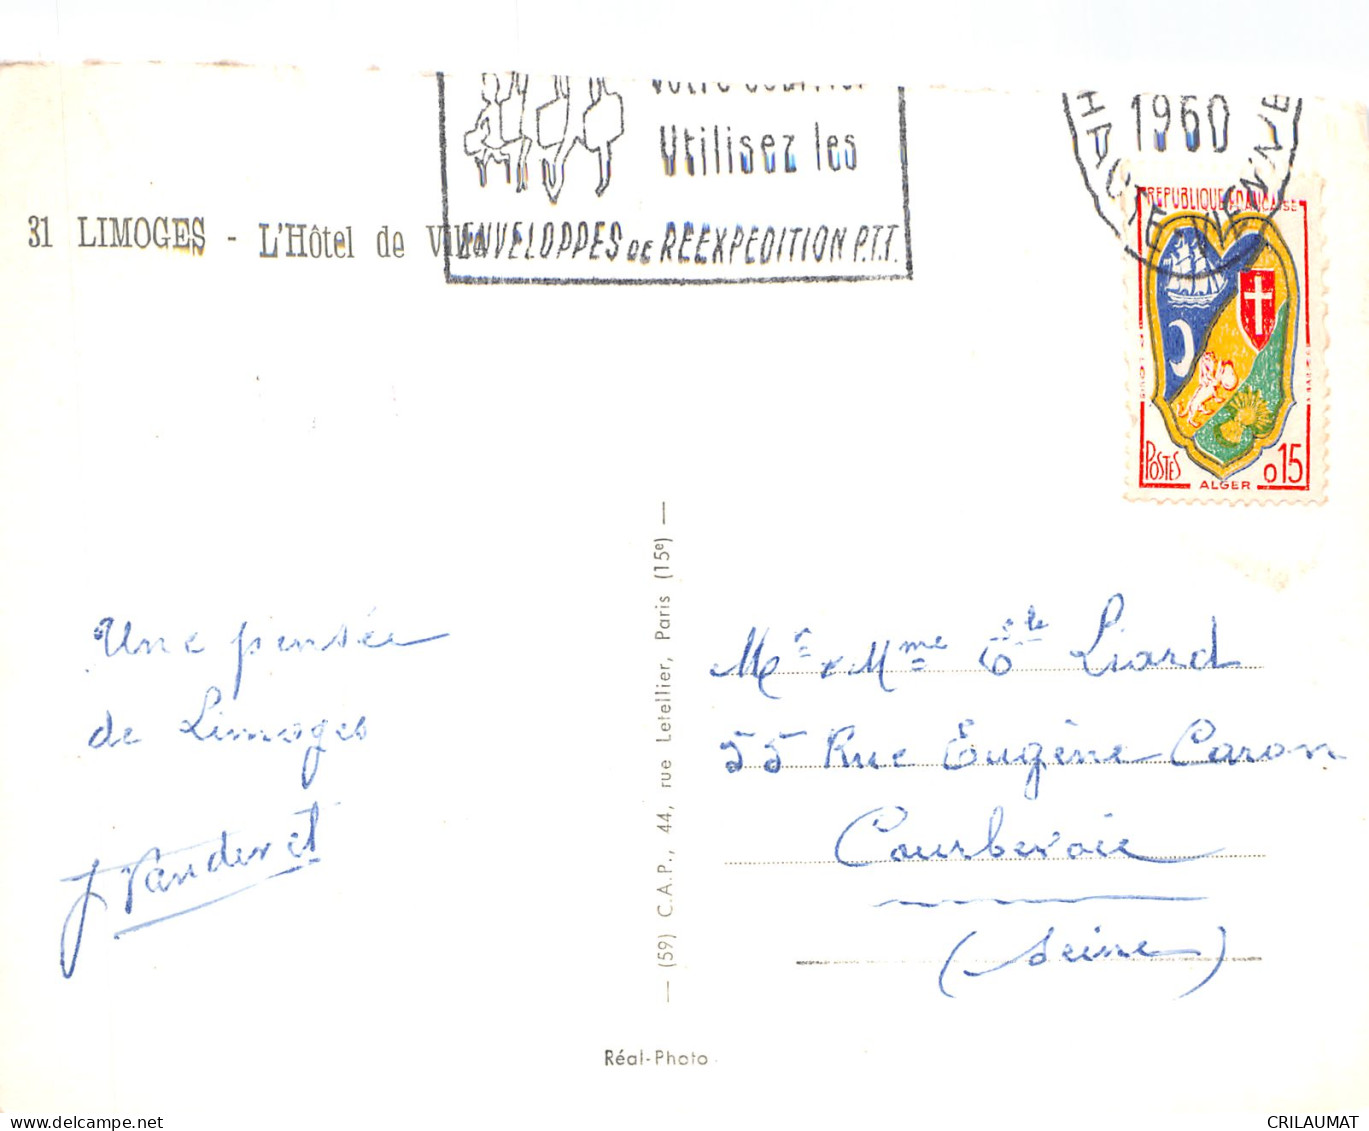 Utilisez les
ENVELOPPES DE REEXPEDITION P.T.T.
1960
HAUTE VIENNE
REPUBLIQUE FRANÇAISE
POSTES
ALGER
0,15
31 LIMOGES - L'Hôtel de Ville
Une pensée
de Limoges
J Vanderet
— (59) C.A.P., 44, rue Letellier, Paris (15e) —
Mr & Mme
Liard
55 Rue Eugène Caron
Courbevoie
(Seine)
Réal-Photo
www.delcampe.net
CRILAUMAT